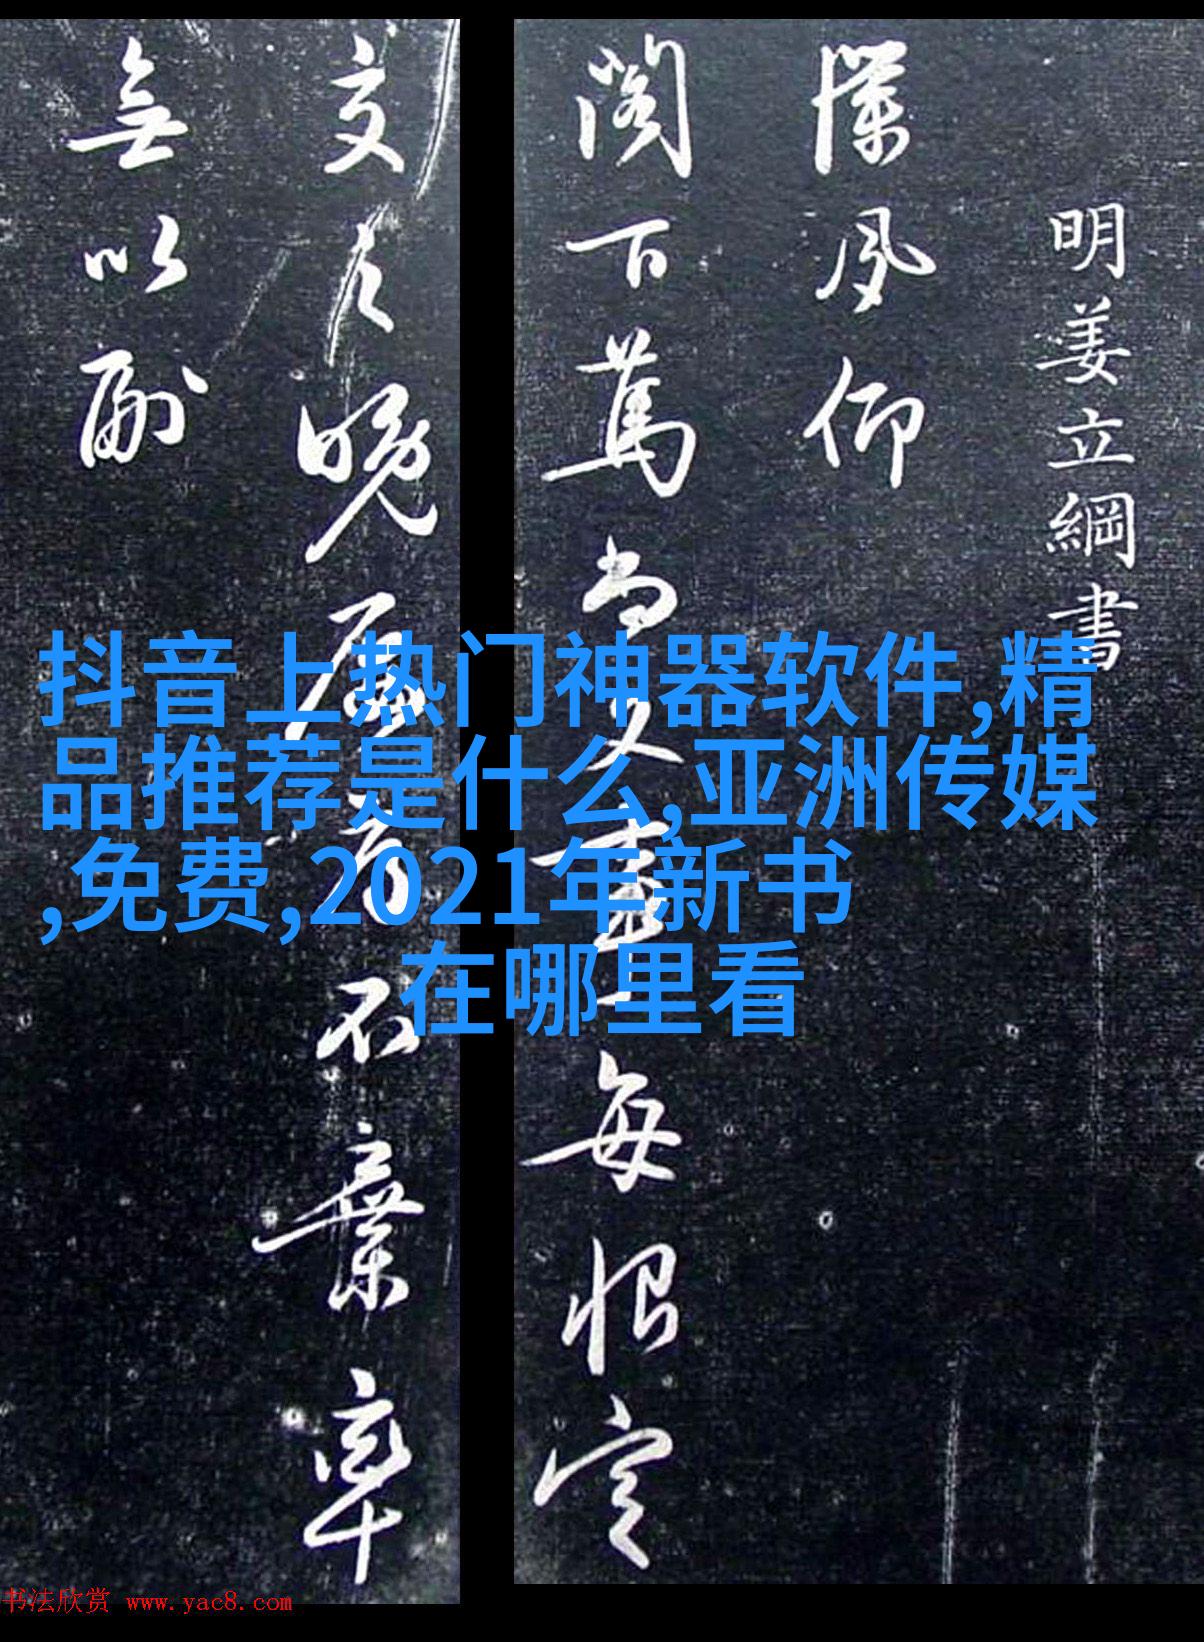 明姜立綱書
夙仰
閣萬尚文每恨
交晚不棄率
無以副
抖音上热门神器软件,精
品推荐是什么,亚洲传媒
,免费,2021年新书
在哪里看
书法欣赏 www.yac8.com